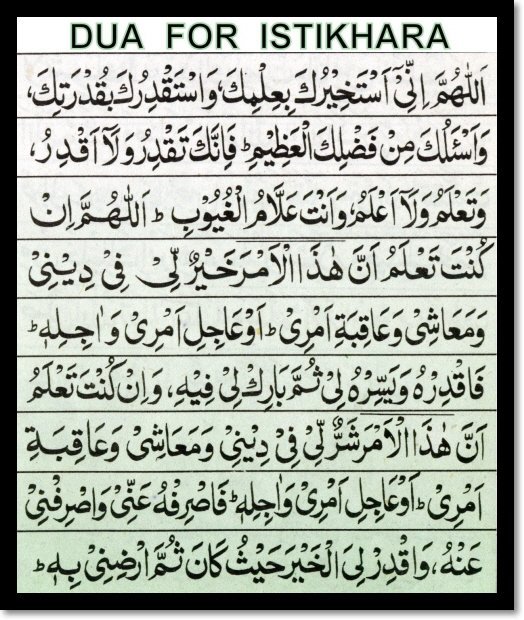 DUA FOR ISTIKHARA
اَللّٰهُمَّ اِنِّیْٓ اَسْتَخِیْرُكَ بِعِلْمِكَ، وَاسْتَقْدِرُكَ بِقُدْرَتِكَ،
وَاَسْئَلُكَ مِنْ فَضْلِكَ الْعَظِیْمِ ؕ فَاِنَّكَ تَقْدِرُ وَلَآ اَقْدِرُ،
وَتَعْلَمُ وَلَآ اَعْلَمُ وَاَنْتَ عَلَّامُ الْغُیُوْبِ ؕ اَللّٰهُمَّ اِنْ
كُنْتَ تَعْلَمُ اَنَّ هٰذَا الْاَمْرَ خَیْرٌ لِّیْ فِیْ دِیْنِیْ
وَمَعَاشِیْ وَعَاقِبَةِ اَمْرِیْ ؕ اَوْ عَاجِلِ اَمْرِیْ وَاٰجِلِهٖ ؕ
فَاقْدِرْهُ وَیَسِّرْهُ لِیْ ثُمَّ بَارِكْ لِیْ فِیْهِ، وَاِنْ كُنْتَ تَعْلَمُ
اَنَّ هٰذَا الْاَمْرَ شَرٌّ لِّیْ فِیْ دِیْنِیْ وَمَعَاشِیْ وَعَاقِبَةِ
اَمْرِیْ ؕ اَوْ عَاجِلِ اَمْرِیْ وَاٰجِلِهٖ ؕ فَاصْرِفْهُ عَنِّیْ وَاصْرِفْنِیْ
عَنْهُ، وَاقْدِرْ لِیَ الْخَیْرَ حَیْثُ كَانَ ثُمَّ ارْضِنِیْ بِهٖ ؕ